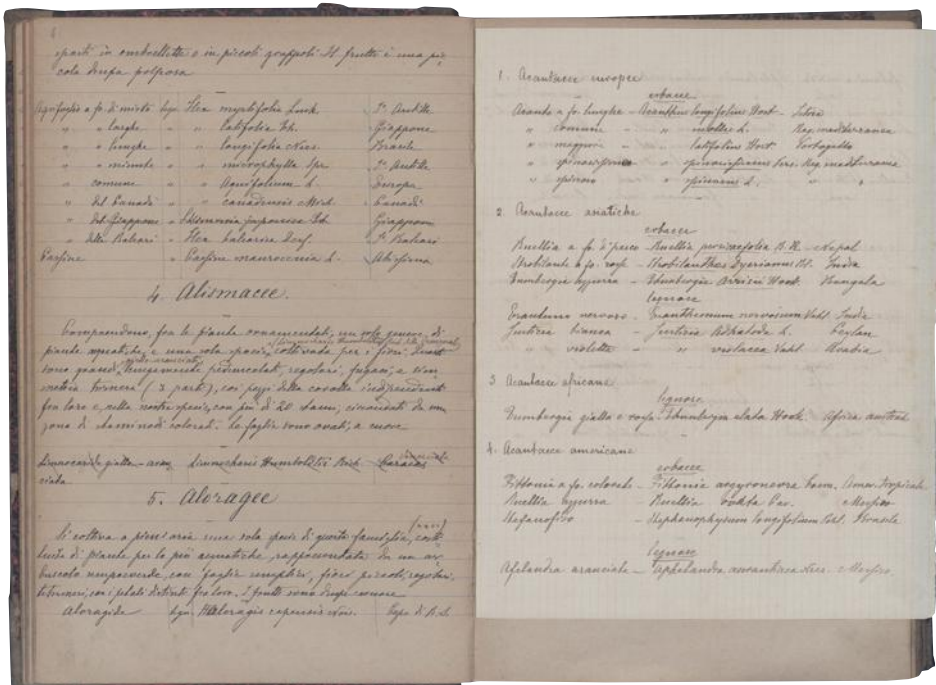 sparsi in ombrellette o in piccoli grappoli. Il frutto è una pic-
cola drupa polposa
Agrifoglio a fo. di mirto legn. Ilex myrtifolia Lmk. Is. Antille
" " larghe " " latifolia Th. Giappone
" " lunghe " " longifolia Nees. Brasile
" " minute " " microphylla Spr. Is. Antille
" comune " " Aquifolium L. Europa
" del Canadà " " canadensis Mich. Canadà
" del Giappone " Skimmia japonica Th. Giappone
" delle Baleari " Ilex balearica Desf. Is. Baleari
Cassine " Cassine maurocenia L. Abissinia
4. Alismacee.
Comprendono, fra le piante ornamentali, un solo genere di
piante acquatiche e una sola specie, coltivata per i fiori. Questi
sono grandi, lungamente peduncolati, regolari, fugaci, a sim-
metria ternaria (3 parti), coi pezzi della corolla indipendenti
fra loro e, nella nostra specie, con più di 20 stami, circondati da una
zona di staminodi colorati. Le foglie sono ovate, a cuore
Limnocaride gialla - Limnocharis Humboldtii Rich. Caracas
5. Aloragee
Si coltiva a pien'aria una sola specie di questa famiglia, costi-
tuita di piante per lo più acquatiche, rappresentata da un ar-
buscolo sempreverde, con foglie semplici, fiori piccoli, regolari,
tetrameri, con i petali distinti fra loro. I frutti sono drupe
Aloragide legn. Haloragis capensis Capo di B. S.
1. Acantacee europee
erbacee
Acanto a fo. lunghe - Acanthus longifolius Host - Istria
" comune - " mollis L. Reg. mediterranea
" maggiore - " latifolius Hort. Portogallo
" spinosissimo " spinosissimus Pers. Reg. mediterranea
" spinoso " spinosus L. " "
2. Acantacee asiatiche
erbacee
Ruellia a fo. di pesco - Ruellia persicaefolia Nepal
Strobilante a fo. rosse - Strobilanthes Dyerianus India
Tumbergia azzurra - Thunbergia Hook. Bengala
legnose
Erantemo nervoso - Eranthemum nervosum Vahl. Indie
Justicia bianca - Justicia Adhatoda L. Ceylan
" violetta - " violacea Vahl. Arabia
3. Acantacee africane
legnose
Tumbergia gialla e rossa - Thunbergia alata Hook. Africa australe
4. Acantacee americane
erbacee
Fittonia a fo. colorate - Fittonia argyroneura Coem. Amer. tropicale
Ruellia azzurra Ruellia Cav. Messico
Stefanofiso - Stephanophysum longifolium Pohl. Brasile
legnose
Afelandra aranciata - Aphelandra aurantiaca Nees. Messico